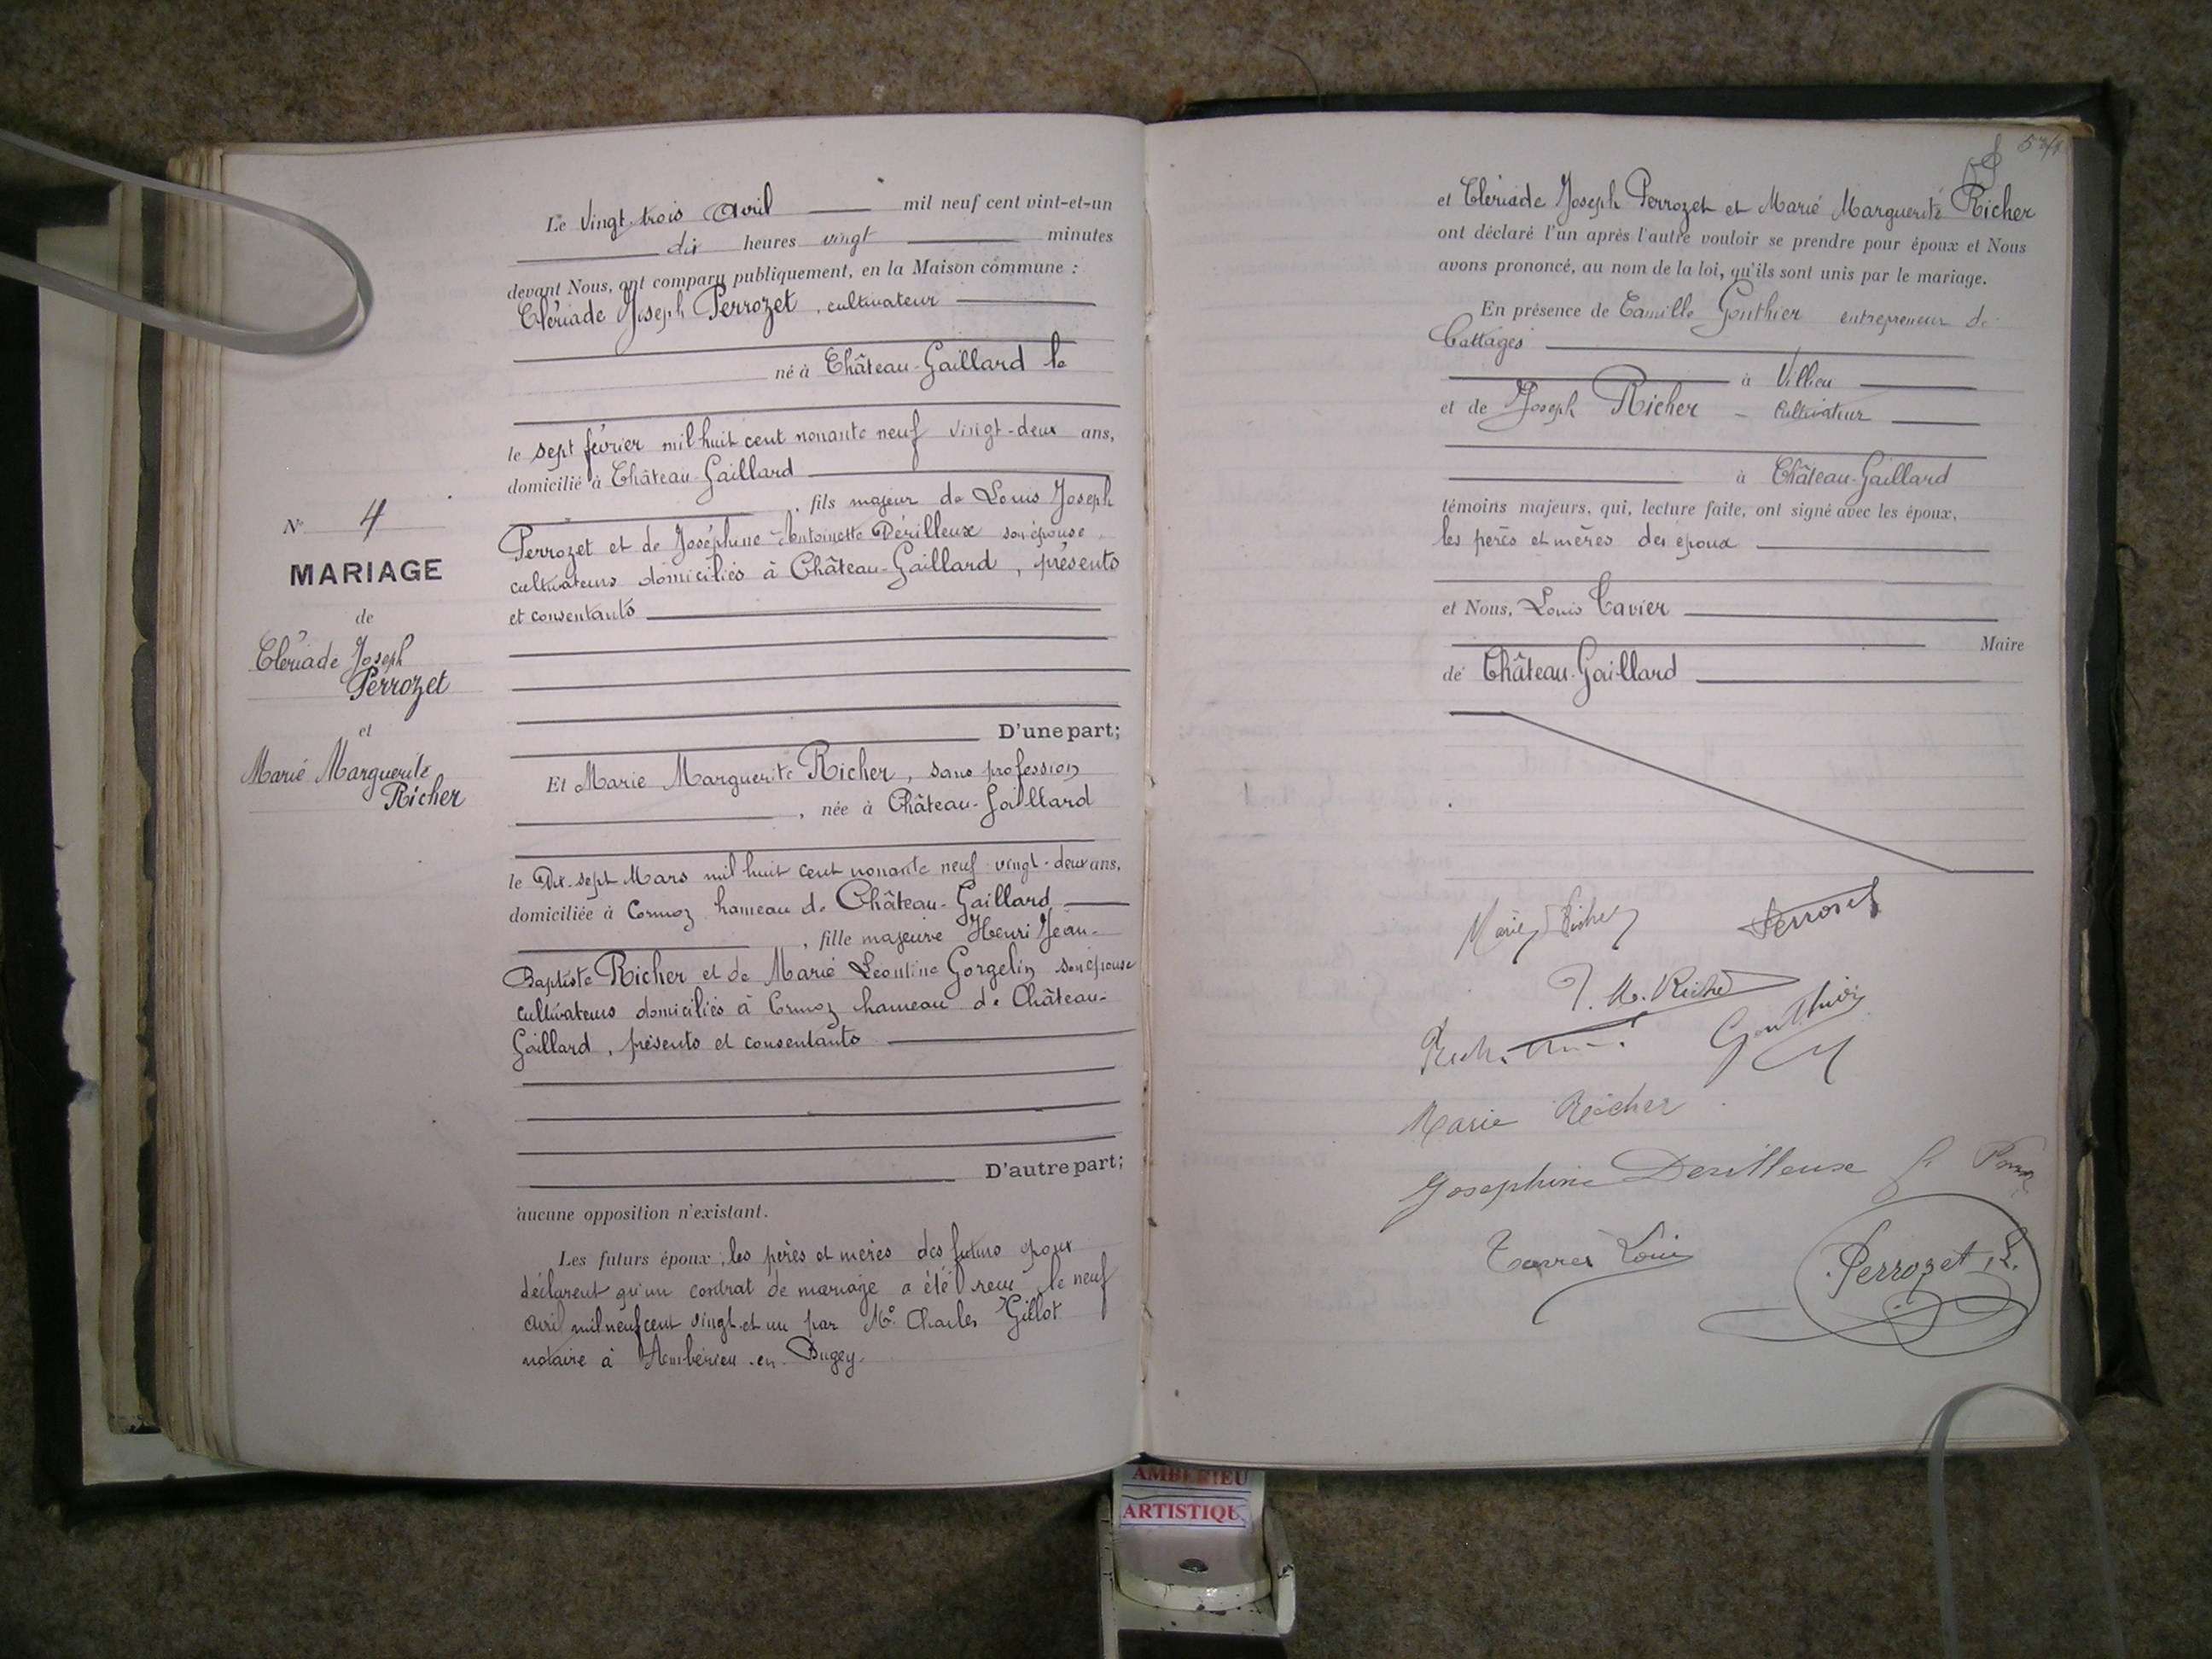 Le Vingt-trois Avril mil neuf cent vint-et-un
dix heures vingt minutes
devant Nous, ont comparu publiquement, en la Maison commune :
Clériade Joseph Perrozet, cultivateur
né à Château-Gaillard le
le sept février mil huit cent nonante neuf vingt-deux ans,
domicilié à Château-Gaillard
, fils majeur de Louis Joseph
Perrozet et de Joséphine Antoinette Dérilleux son épouse,
cultivateurs domiciliés à Château-Gaillard, présents
et consentants
N° 4
MARIAGE
de
Clériade Joseph
Perrozet
et
Marie Marguerite
Richer
D'une part;
Et Marie Marguerite Richer, sans profession
, née à Château-Gaillard
le Dix-sept Mars mil huit cent nonante neuf vingt-deux ans,
domiciliée à Cormoz hameau de Château-Gaillard
, fille majeure Henri Jean-
Baptiste Richer et de Marie Léontine Gorgelin son épouse
cultivateurs domiciliés à Cormoz hameau de Château-
Gaillard, présents et consentants
D'autre part;
aucune opposition n'existant.
Les futurs époux, les pères et mères des futurs époux
déclarent qu'un contrat de mariage a été reçu le neuf
avril mil neuf cent vingt et un par Me Charles Gillot
notaire à Ambérieu-en-Bugey.
et Clériade Joseph Perrozet et Marie Marguerite Richer
ont déclaré l'un après l'autre vouloir se prendre pour époux et Nous
avons prononcé, au nom de la loi, qu'ils sont unis par le mariage.
En présence de Camille Gonthier entrepreneur de
battages
à Villieu
et de Joseph Richer - Cultivateur
à Château-Gaillard
témoins majeurs, qui, lecture faite, ont signé avec les époux,
les pères et mères des époux
et Nous, Louis Tavier
Maire
de Château-Gaillard
Marie Richer Perrozet
J. M. Richer
Gonthier
Marie Richer
Josephine Derilleuse
Louis
Perrozet L.
AMBERIEU
ARTISTIQU